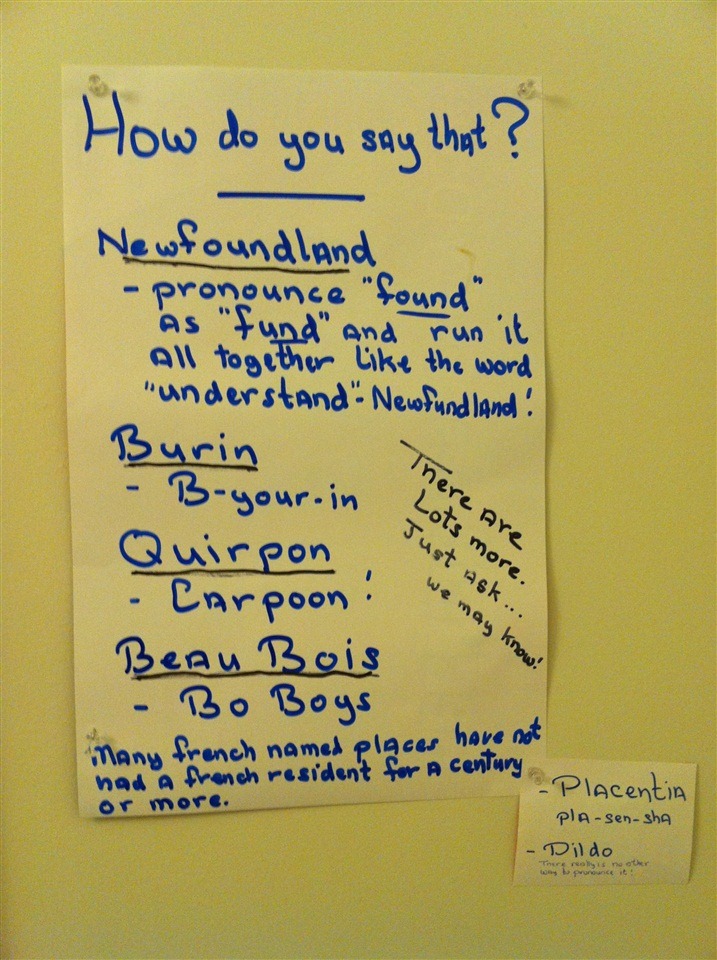 How do you say that?
Newfoundland
- pronounce "found"
As "fund" And run it
All together Like the word
"understand"- Newfundland!
Burin
- B-your-in
Quirpon
- Carpoon!
Beau Bois
- Bo Boys
Many french named places have not
had a french resident for a century
or more.
There are
Lots more.
Just ask...
we may know!
- Placentia
pla-sen-sha
- Dildo
There really is no other
way to pronounce it!